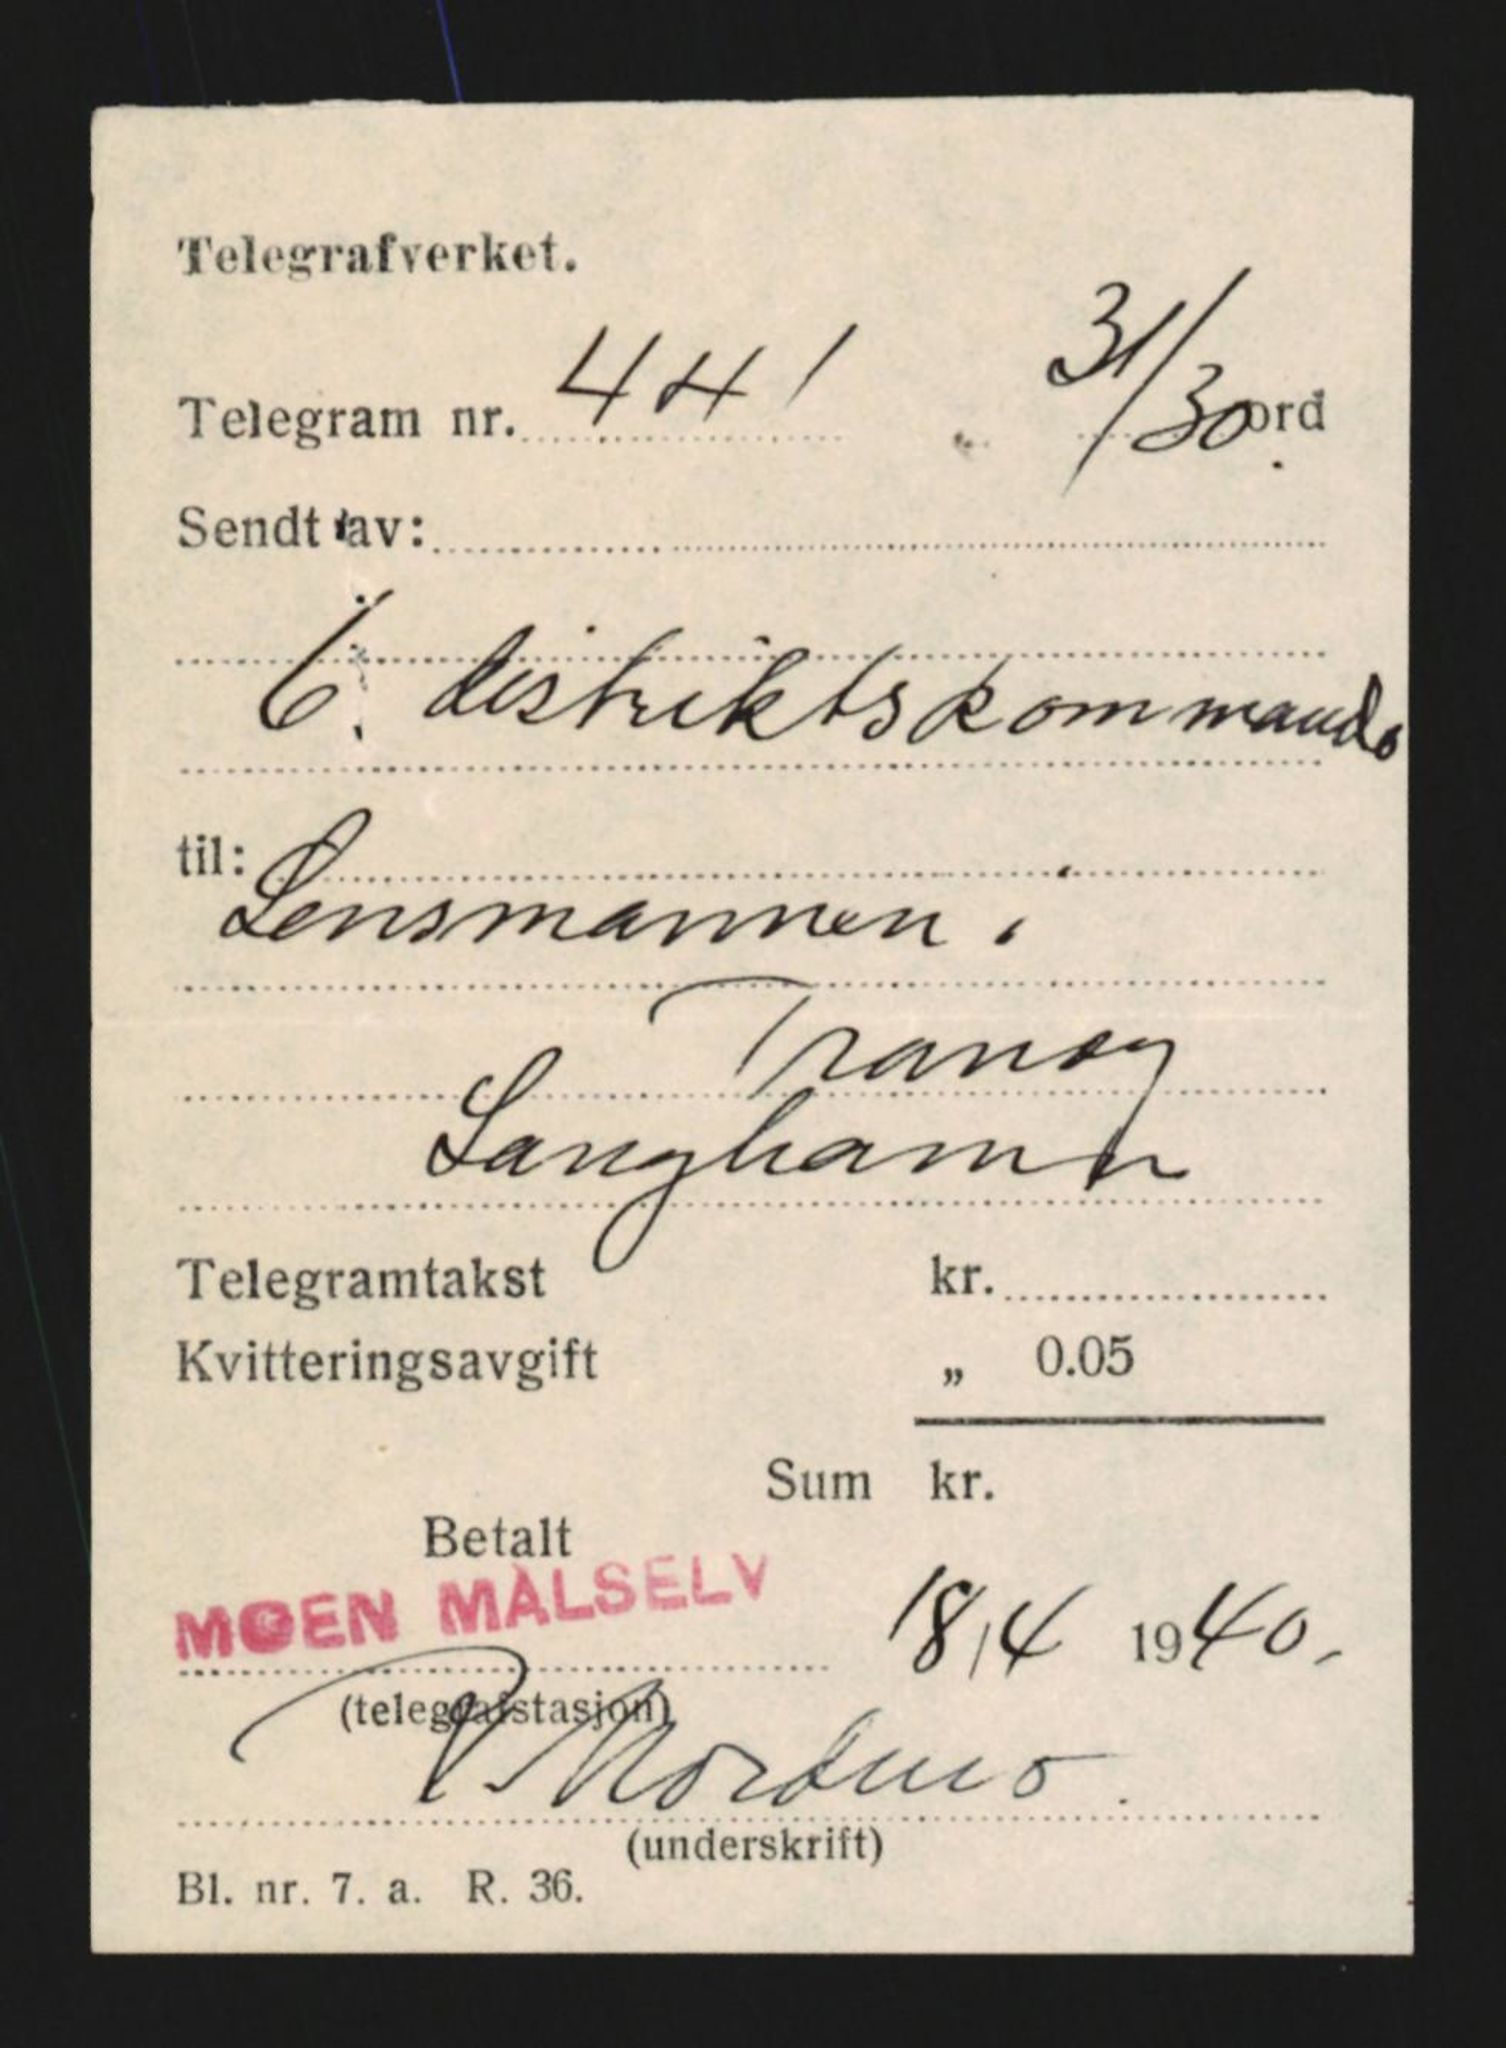 Telegrafverket.
Telegram nr. 441 31/30 ord
Sendt av:
6. distriktskommando
til:
Lensmannen i
Tranøy
Langhamn
Telegramtakst kr.
Kvitteringsavgift „ 0.05
Sum kr.
Betalt
MOEN MÅLSELV 18/4 1940.
(telegrafstasjon)
P Nordmo
(underskrift)
Bl. nr. 7. a. R. 36.